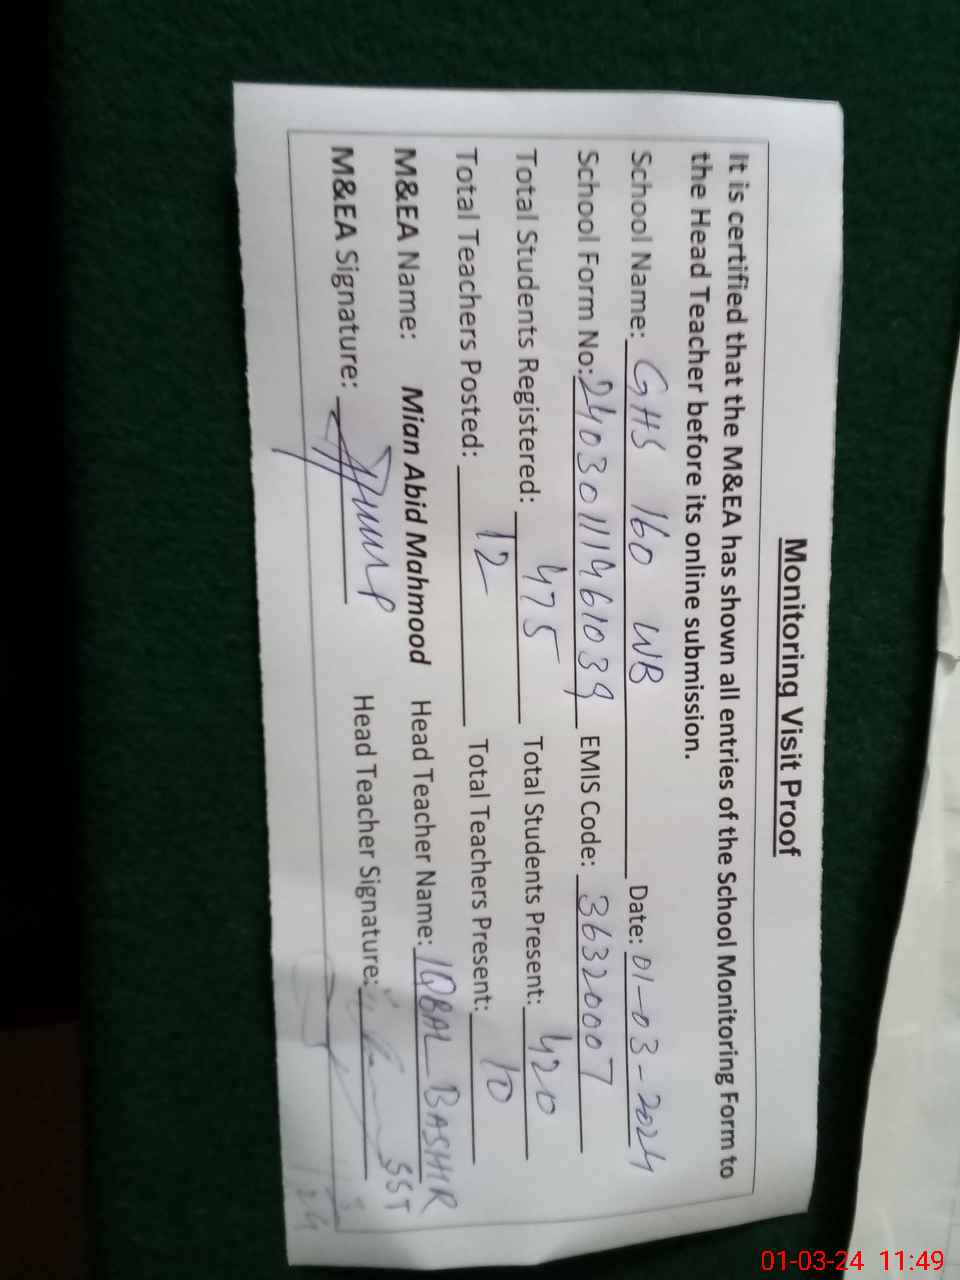 Monitoring Visit Proof
It is certified that the M&EA has shown all entries of the School Monitoring Form to
the Head Teacher before its online submission.
School Name: GHS 160 WB Date: 01-03-2024
School Form No: 24030111461039 EMIS Code: 36320007
Total Students Registered: 475 Total Students Present: 420
Total Teachers Posted: 12 Total Teachers Present: 10
M&EA Name: Mian Abid Mahmood Head Teacher Name: IQBAL BASHIR SST
M&EA Signature: Head Teacher Signature:
01-03-24 11:49